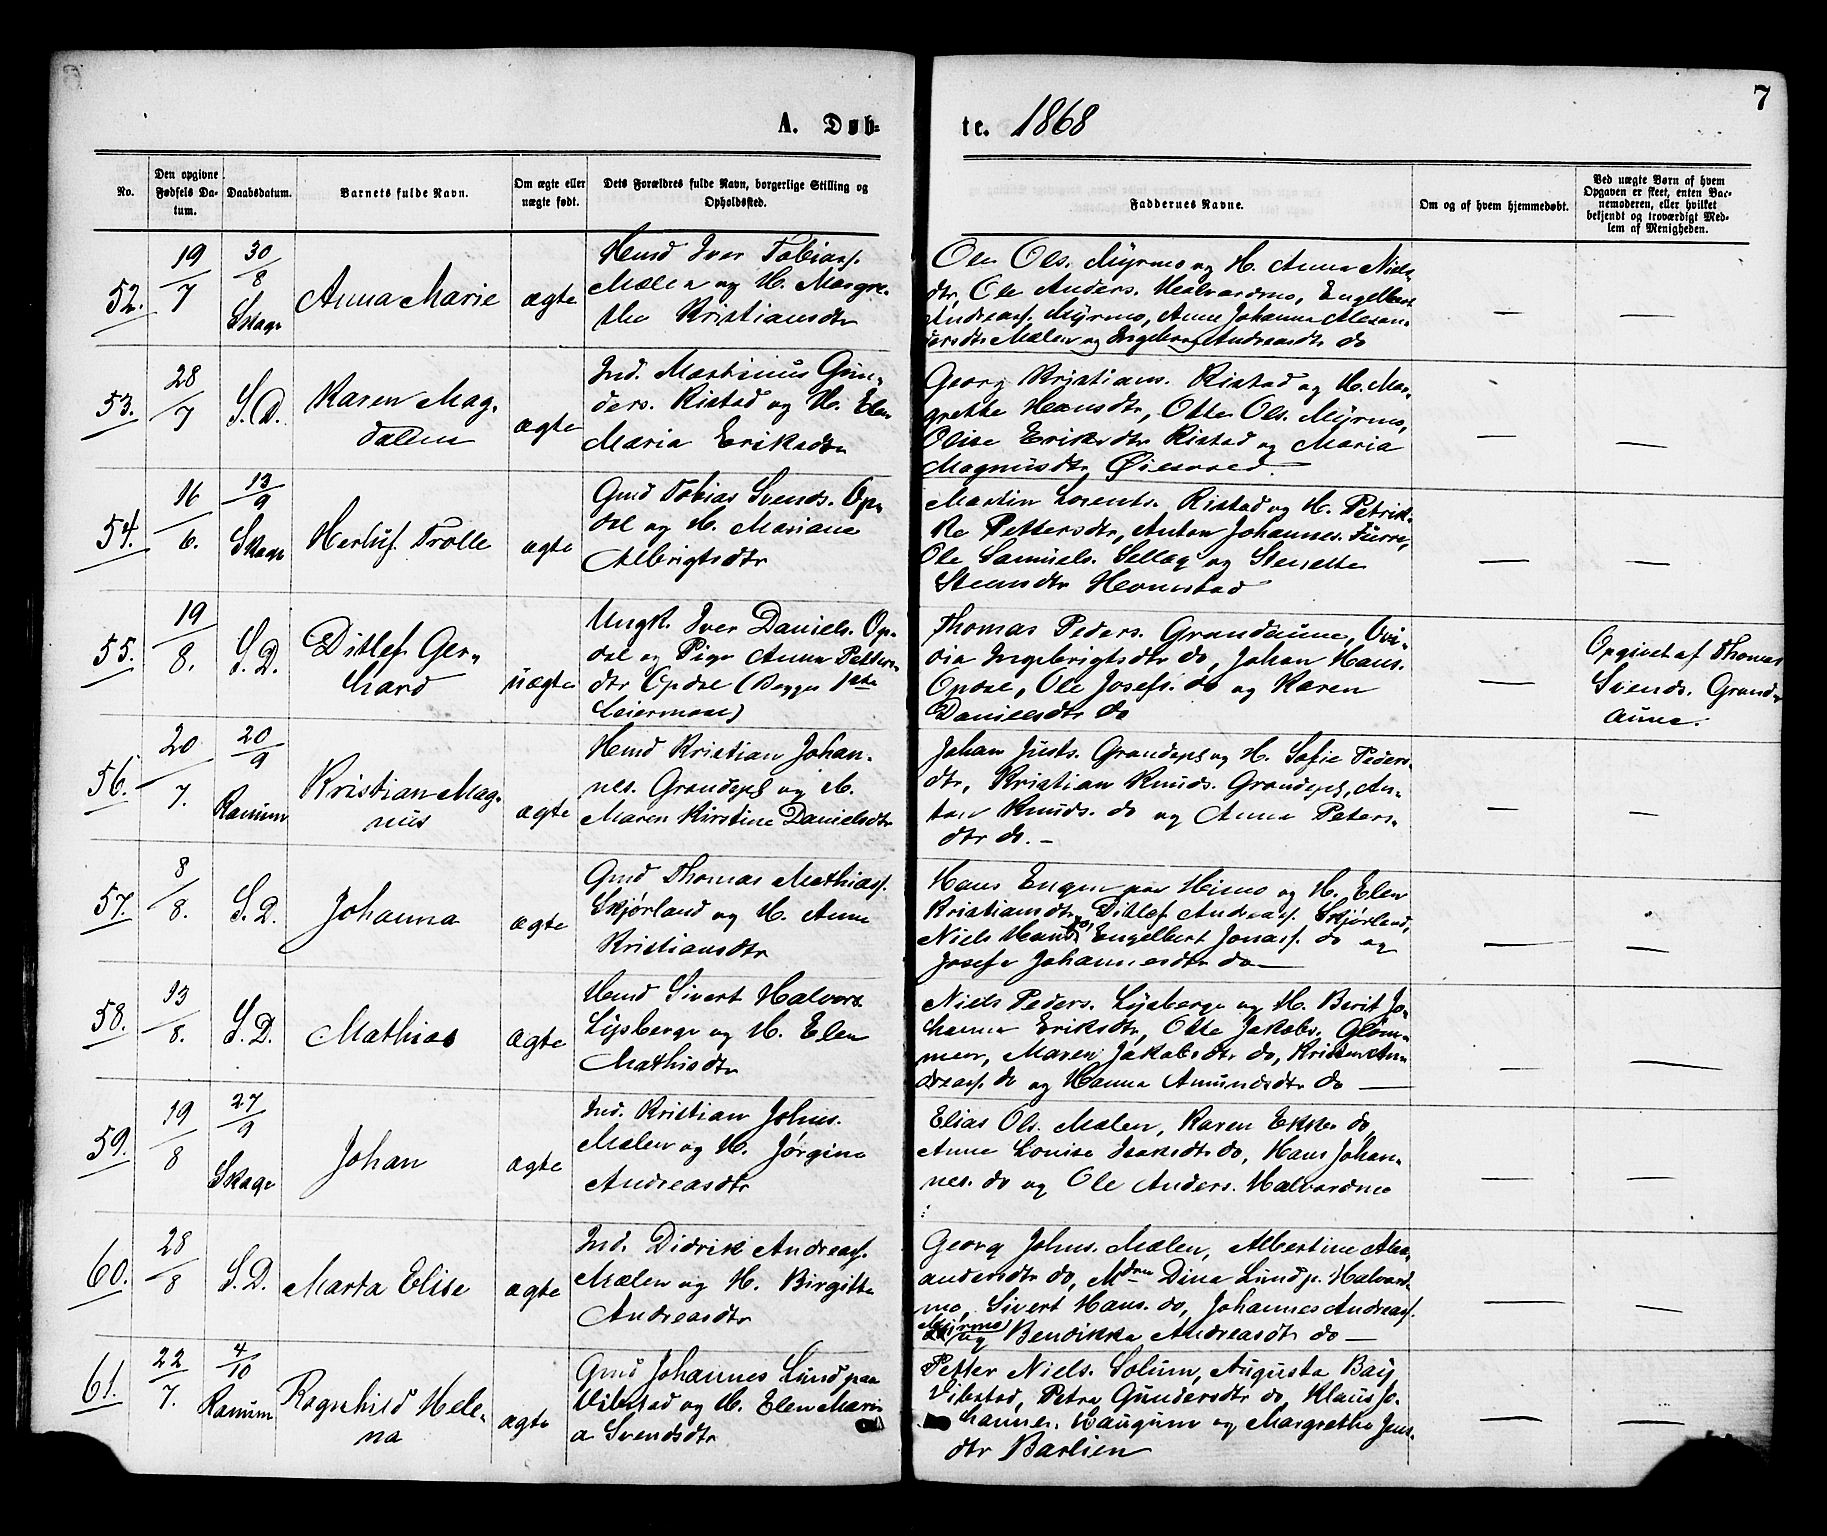 7
A. Døb-
te. 1868
No.
Den opgivne Fødsels Da-tum.
Daabsdatum.
Barnets fulde Navn.
Om ægte eller uægte født.
Dets Forældres fulde Navn, borgerlige Stilling og Opholdssted.
Faddernes Navne.
Om og af hvem hjemmedøbt.
Ved uægte Børn af hvem Opgaven er skeet, enten Bar-nemoderen, eller hvilket bekjendt og troværdigt Med-lem af Menigheden.
52.
19/7
30/8
Skage
Anna Marie
ægte
Husmd Iver Tobiass.
Mælen og H. Margre-
the Kristiansdtr
Ole Ols. Myrmo og H. Anna Niels
dtr, Ole Anders. Halvardmo, Engelbert
Andreass. Myrmo, Anne Johanna Alexan-
dersdtr Mælen og Ingeborg Andreasdtr do
—
—
53.
28/7
S.D.
Karen Mag-
dalena
ægte
Ind. Martinus Gun-
ders. Ristad og H. Elen
Maria Eriksdtr
Georg Kristians. Ristad og H. Mar-
grethe Hansdtr, Otte Ols. Myrmo,
Olise Eriksdtr Ristad og Maria
Magnusdtr Øiesvold
—
—
54.
16/6.
13/9
Skage
Herluf Trolle
ægte
Gmd Tobias Svends. Op-
dal og H. Mariane
Albrigtsdtr
Martin Lorents. Ristad og H. Petrik-
ke Pettersdtr, Anton Johannes. Furre,
Ole Samuels. Sellæg og Stenette
Steensdtr Homstad
—
—
55.
19/8.
S.D.
Ditlef Ger-
hard
uægte
Ungk. Iver Daniels. Op-
dal og Pige Anna Petters-
dtr Opdal (Begges 1ste
Leiermaal)
Thomas Peders. Grandaune, Ovi-
dia Ingebrigtsdtr do, Johan Hans.
Opdal, Ole Josefs. do og Karen
Danielsdtr do
—
Opgivet af Thomas
Svends. Grand-
aune.
56.
20/7.
20/9
Ranum
Kristian Mag-
nus
ægte
Husmd Kristian Johan-
nes. Grandepl og H.
Maren Kirstine Danielsdtr
Johan Justs. Grandepl og H. Sofie Peders-
dtr, Kristian Knuds. Grandepl, An-
ton Knuds. do og Anna Peters-
dtr do. —
—
—
57.
8/8.
S.D.
Johanna
ægte
Gmd Thomas Mathiass.
Skjørland og H. Anne
Kristiansdtr
Hans Engen paa Himo og H. Elen
Kristiansdtr, Ditlef Andreass. Skjørland,
Niels Hans. do, Engelbert Jonass. do og
Josefa Johannesdtr do —
—
—
58.
13/8.
S.D.
Mathias
ægte
Husmd Sivert Halvors.
Lysberge og H. Elen
Mathisdtr
Niels Peders. Lysberge og H. Berit Jo-
hanna Eriksdtr, Otte Jakobs. Gløm-
men, Maren Jakobsdtr do, Kristen An-
dreass. do og Hanna Amundsdtr do —
—
—
59.
19/8
27/9
Skage
Johan
ægte
Ind. Kristian Johns.
Mælen og H. Jørgine
Andreasdtr
Elias Ols. Mælen, Karen do
Anne Lovise Isaksdtr do, Hans Johan-
nes. do og Ole Anders. Halvardmo
—
—
60.
28/8
S.D.
Marta Elise
ægte
Ind. Didrik Andreass.
Mælen og H. Birgitte
Andreasdtr
Georg Johns. Mælen, Albertine Alex-
andersdtr do, Mdm Dina Lund p. Halvard-
mo, Sivert Hans. do, Johannes Andreass.
Myrmo og Bendikka Andreasdtr do —
—
—
61.
22/7.
4/10
Ranum
Ragnhild Hele-
na
ægte
Gmd Johannes Lund paa
Vibstad og H. Elen Mari-
a Svendsdtr
Petter Niels. Solum, Augusta Bay
Vibstad, Petra Gundersdtr do, Klaus Jo-
hannes. Haugum og Margrethe Jens-
dtr Barlien
—
—